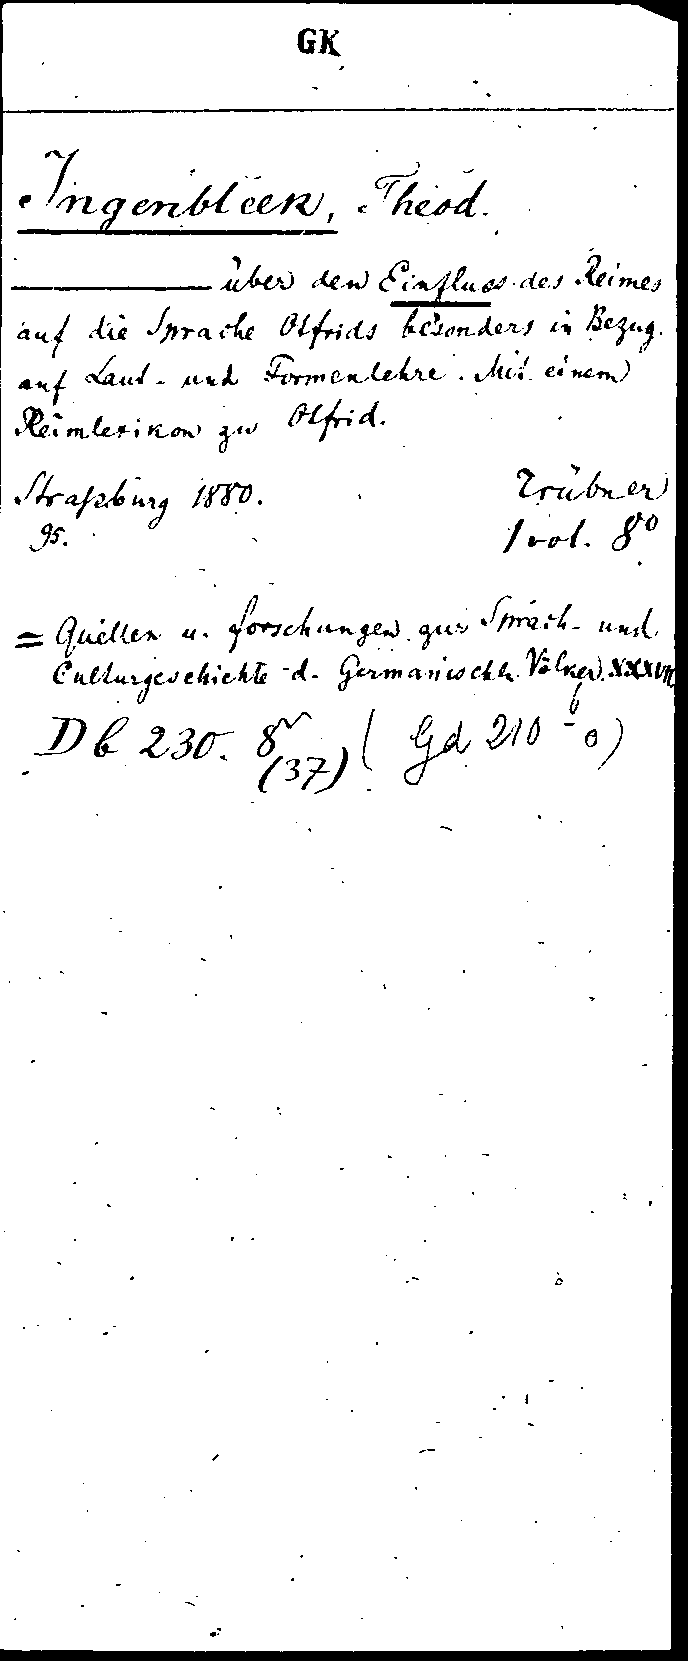 GK
Ingenbleek, Théod.
über den Einfluss des Reimes
auf die Sprache Otfrids besonders in Bezug
auf Laut- und Formenlehre. Mit einem
Reimlexikon zu Otfrid.
Straßburg 1880. Trübner
95. 1 vol. 8°
= Quellen u. forschungen zur Sprach- und
Culturgeschichte d. Germanischen Völker XXXVII
Db 230. 8
(37) (Gd 210